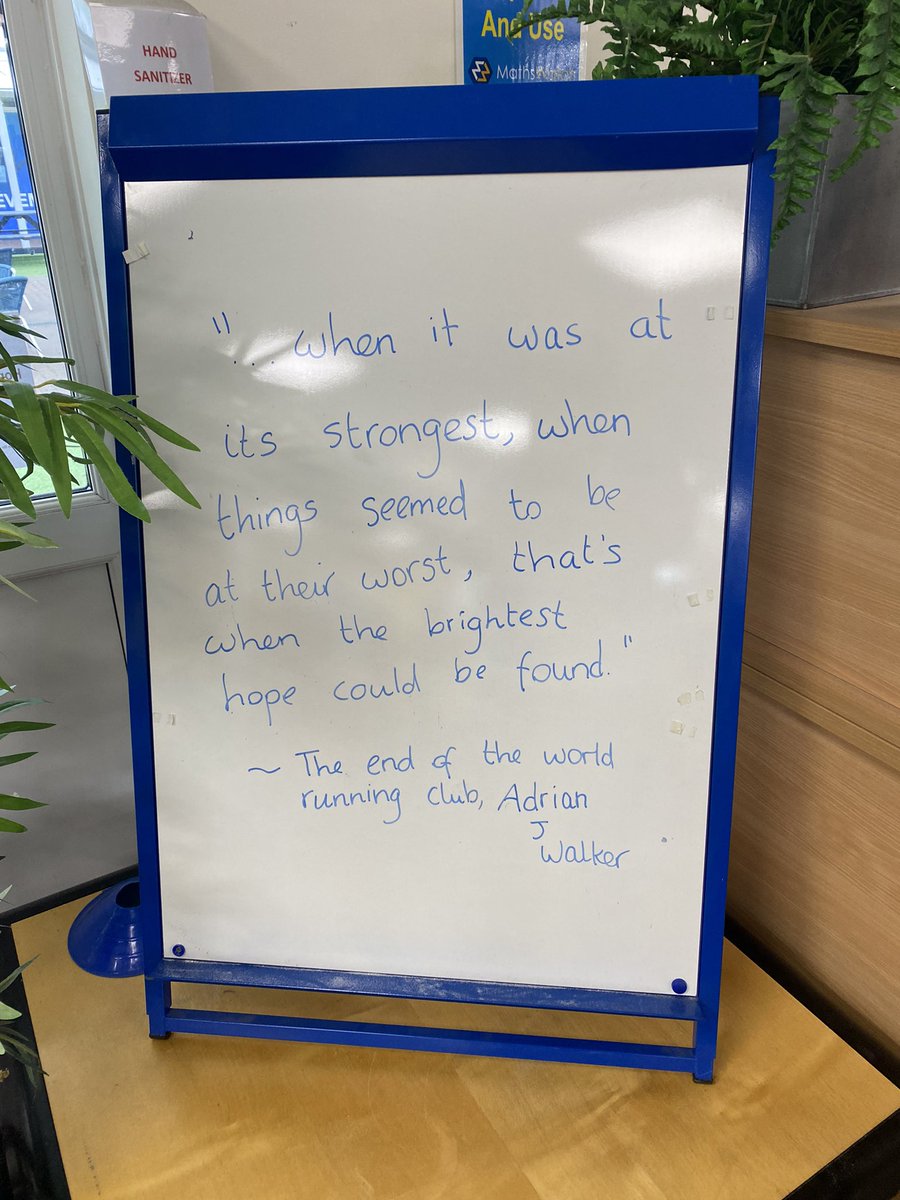 HAND
SANITIZER
And Use
"... when it was at
its strongest, when
things seemed to be
at their worst, that's
when the brightest
hope could be found."
~ The end of the world
running club, Adrian
J
Walker